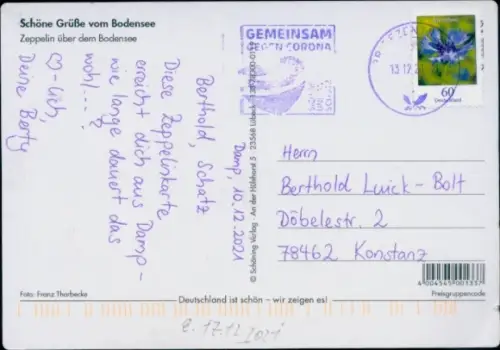 Schöne Grüße vom Bodensee
Zeppelin über dem Bodensee
GEMEINSAM
GEGEN CORONA
13.12.
60
Deutschland
Damp, 10.12.2021
Berthold, Schatz
Diese Zeppelinkarte
erreicht dich aus Damp-
wie lange dauert das
wohl...?
♡-lich,
Deine Berty
© Schöning Verlag · An der Hülshorst 5 · 23568 Lübeck
Herrn
Berthold Luick-Bolt
Döbelestr. 2
78462 Konstanz
4004545001337
Preisgruppencode
Foto: Franz Thorbecke
Deutschland ist schön – wir zeigen es!
e. 17.12.2021